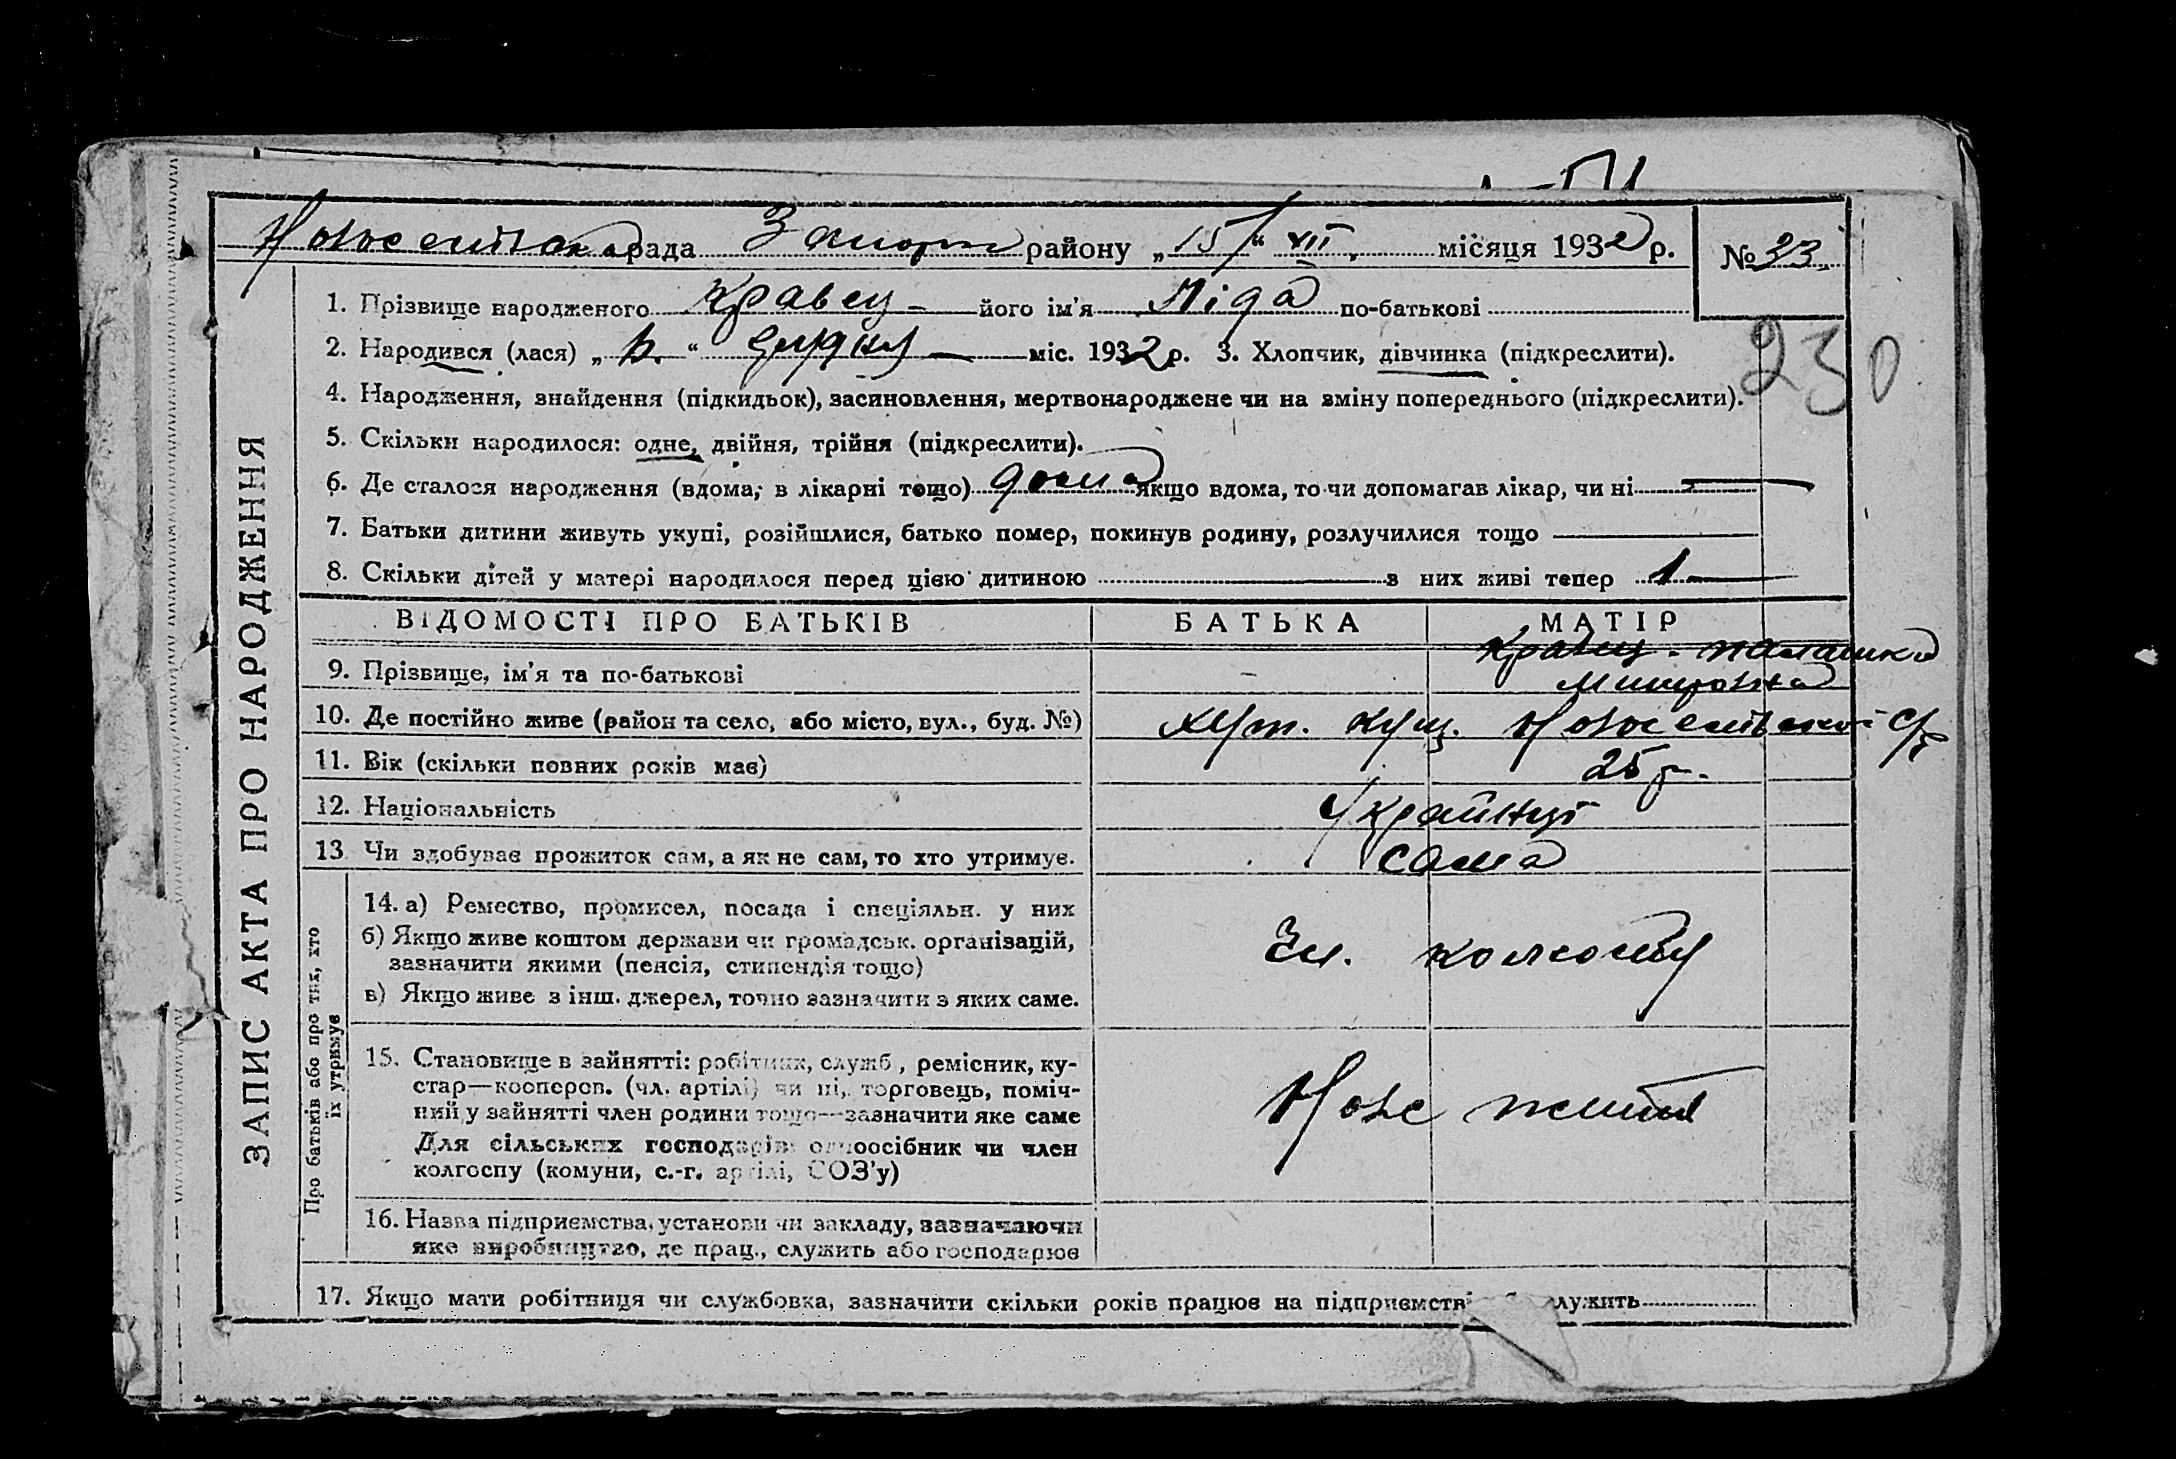 рада района „15“ VII місяця 1932 р.
№ 33
230
1. Прізвище народженого Кравец його ім'я Ліда по-батькові
2. Народився (лася) „ “ міс. 1932 р. 3. Хлопчик, дівчинка (підкреслити).
4. Народження, знайдення (підкидьок), засиновлення, мертвонароджене чи на зміну попереднього (підкреслити).
5. Скільки народилося: одне, двійня, трійня (підкреслити).
6. Де сталося народження (вдома, в лікарні тощо) дома якщо вдома, то чи допомагав лікар, чи ні
7. Батьки дитини живуть укупі, розійшлися, батько помер, покинув родину, розлучилися тощо
8. Скільки дітей у матері народилося перед цією дитиною з них живі тепер 1
ЗАПИС АКТА ПРО НАРОДЖЕННЯ
ВІДОМОСТІ ПРО БАТЬКІВ БАТЬКА МАТІР
Кравец
9. Прізвище, ім'я та по-батькові
10. Де постійно живе (район та село, або місто, вул., буд. №) Хут.
11. Вік (скільки повних років має) 25 р.
12. Національність Українці
13 Чи здобуває прожиток сам, а як не сам, то хто утримує. сама
Про батьків або про тих, хто їх утримує
14. а) Ремество, промисел, посада і спеціяльн. у них
б) Якщо живе коштом держави чи громадськ. організацій,
зазначити якими (пенсія, стипендія тощо)
Чл. колгоспу
в) Якщо живе з інш. джерел, точно зазначити з яких саме.
15. Становище в зайнятті: робітник, служб., ремісник, ку-
стар—коопероп. (чл. артілі) чи ні, торговець, поміч-
ний у зайнятті член родини тощо—зазначити яке саме
Нове життя
Для сільських господарів: одноосібник чи член
колгоспу (комуни, с.-г. артілі, СОЗ'у)
16. Назва підприємства, установи чи закладу, зазначаючи
яке виробництво, де прац., служить або господарює
17. Якщо мати робітниця чи службовка, зазначити скільки років працює на підприємстві служить